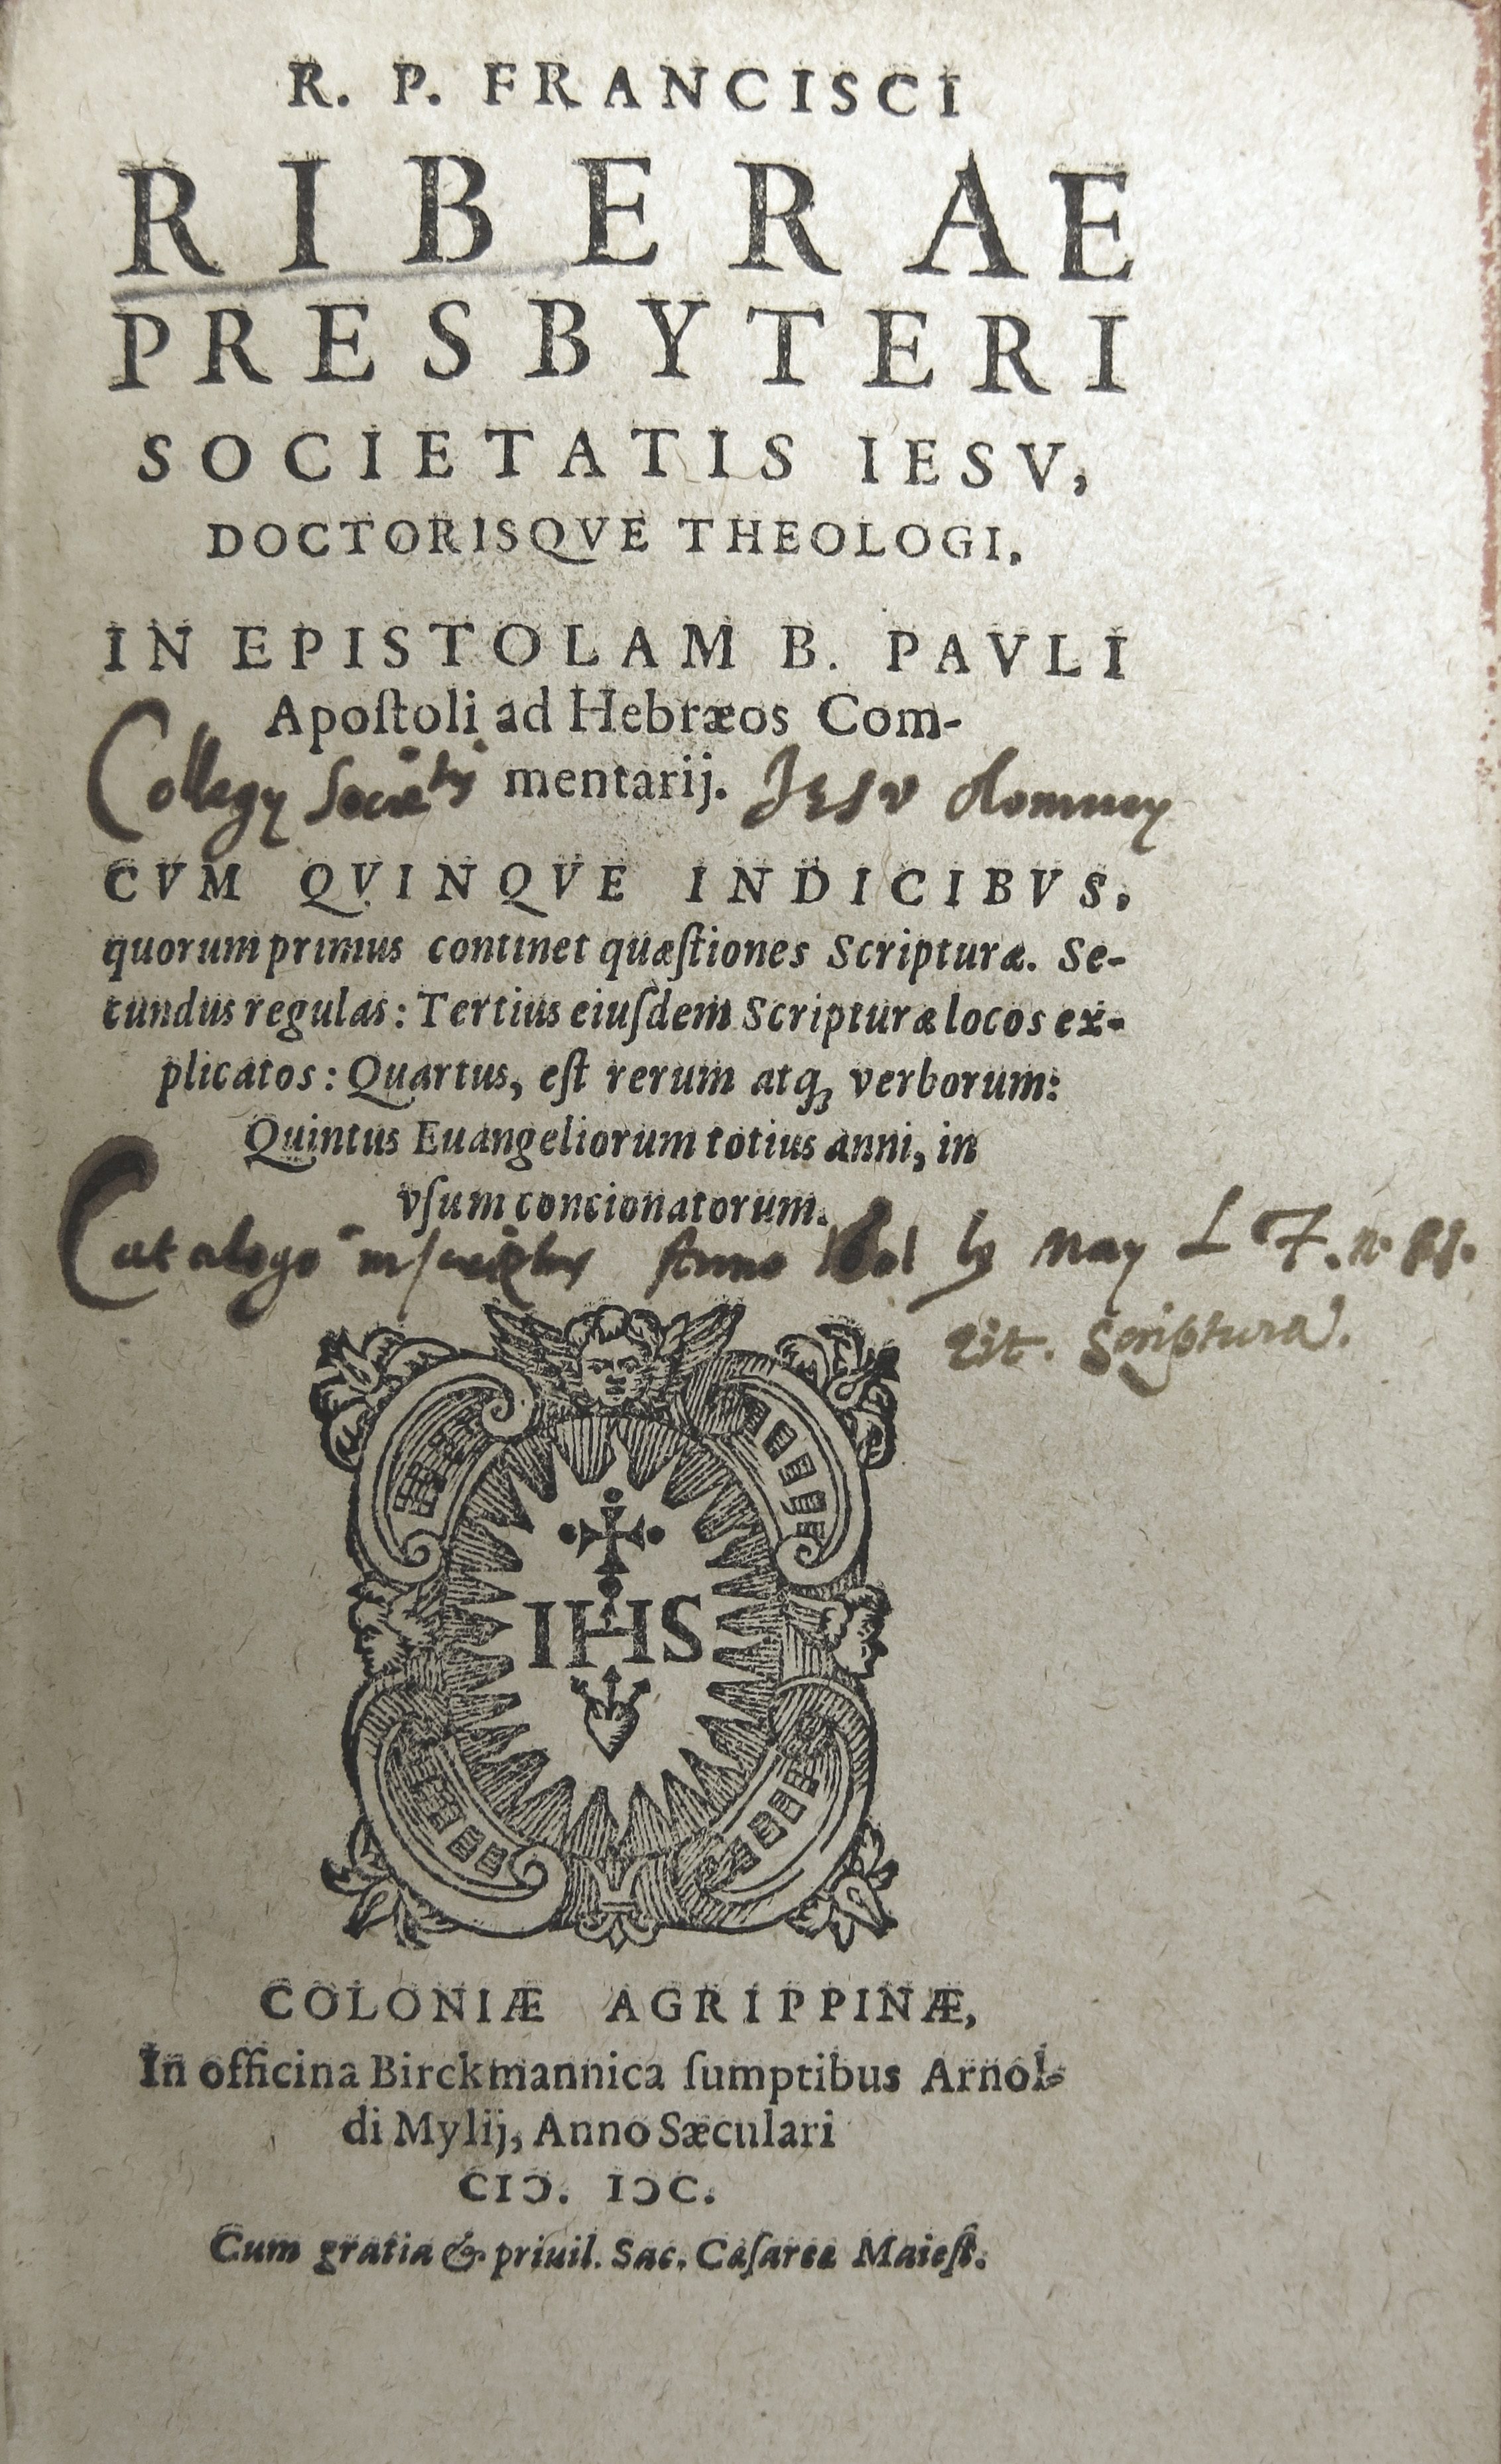 R. P. FRANCISCI
RIBERAE
PRESBYTERI
SOCIETATIS IESV,
DOCTORISQVE THEOLOGI,
IN EPISTOLAM B. PAVLI
Apoſtoli ad Hebræos Com-
mentarij.
Collegy Societis Jesv
CVM QVINQVE INDICIBVS,
quorum primus continet quæſtiones Scripturæ. Se-
cundus regulas: Tertius eiuſdem Scripturæ locos ex-
plicatos: Quartus, eſt rerum atq; verborum:
Quintus Euangeliorum totius anni, in
vſum concionatorum.
Catalogo inscriptus Anno May L F. n.
Tit. Scriptura.
IHS
COLONIÆ AGRIPPINÆ,
In officina Birckmannica ſumptibus Arnol-
di Mylij, Anno Sæculari
CIↃ. IↃC.
Cum gratia & priuil. Sac. Cæſareæ Maieſt.